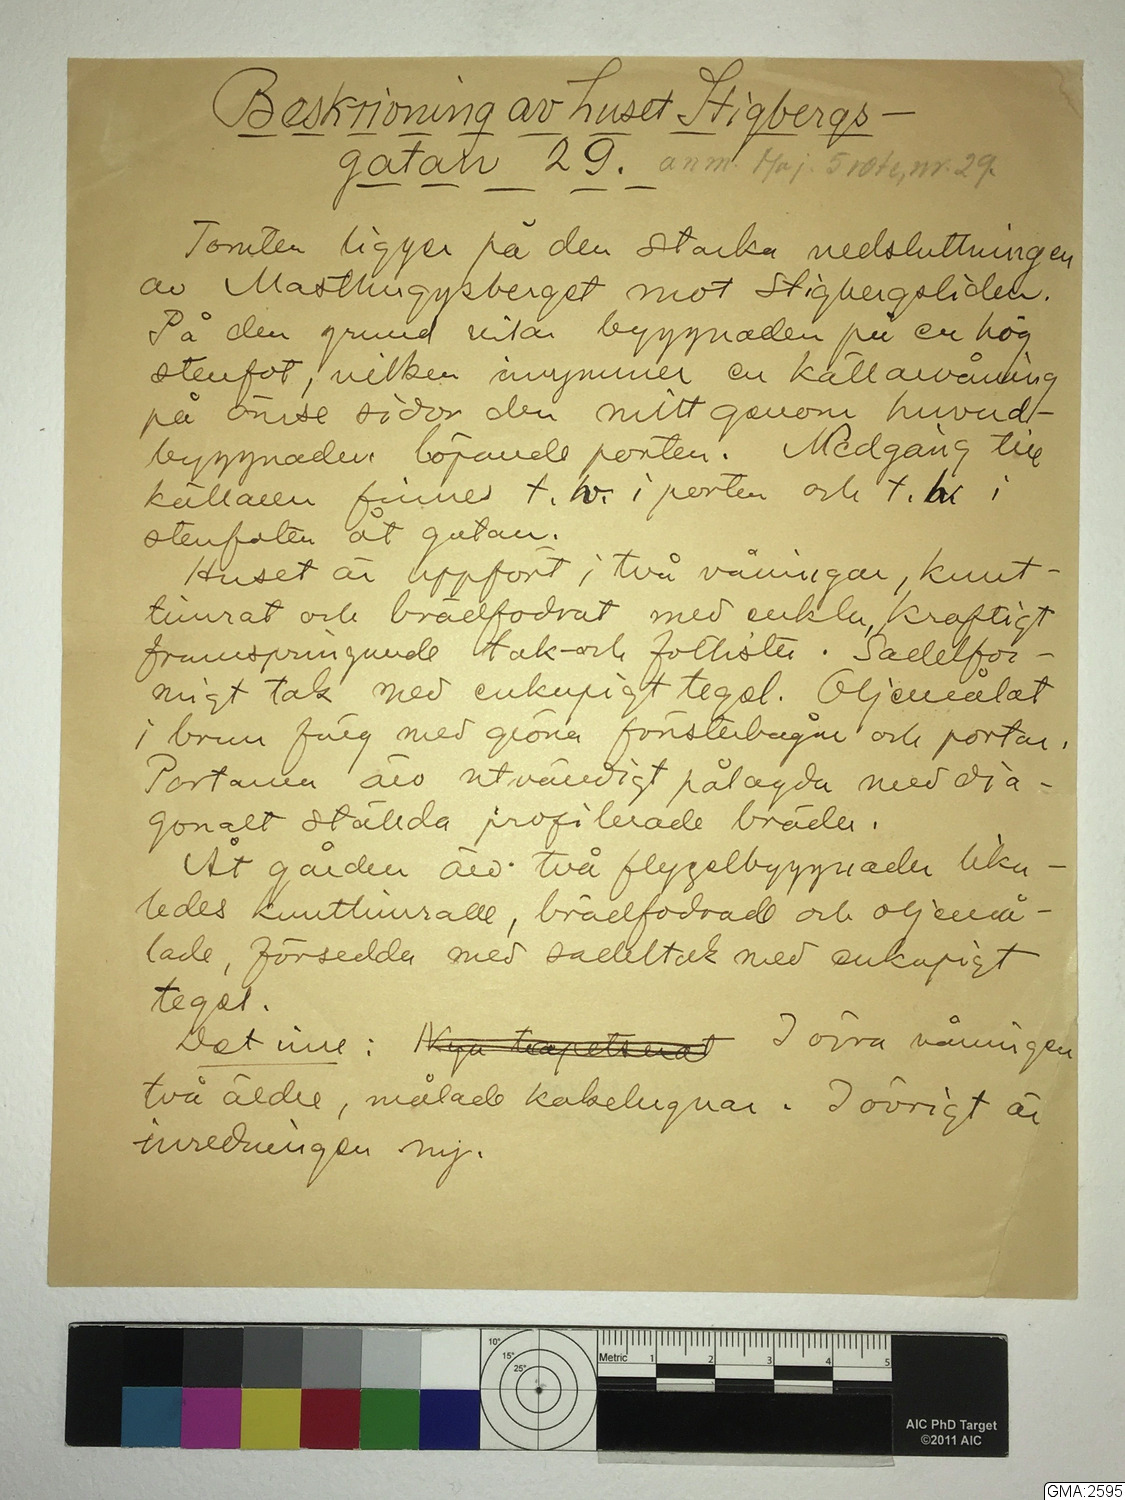 Beskrivning av huset Stigbergs-
gatan 29. anm. Maj. 5 rote, nr. 29.
Tomten ligger på den starka nedsluttningen
av Masthuggsberget mot Stigbergsliden.
På den grund vilar byggnaden på en hög
stenfot, vilken inrymmer en källarvåning
på ömse sidor den mitt genom huvud-
byggnaden löpande porten. Nedgång till
källaren finnes t. v. i porten och t. h. i
stenfoten åt gatan.
Huset är uppfört i två våningar, knut-
timrat och brädfodrat med enkla, kraftigt
framspringande tak- och fotlister. Sadelfor-
migt tak med enkupigt tegel. Oljemålat
i brun färg med gröna fönsterbågar och portar.
Portarna äro utvändigt pålagda med dia-
gonalt ställda profilerade bräder.
Åt gården äro två flygelbyggnader lika-
ledes knuttimrade, brädfodrade och oljemå-
lade, försedda med sadeltak med enkupigt
tegel.
Det inre: Nya tapetserat I övra våningen
två äldre, målade kakelugnar. I övrigt är
inredningen ny.
10°
15°
25°
Metric 1 2 3 4 5
AIC PhD Target
©2011 AIC
GMA:2595